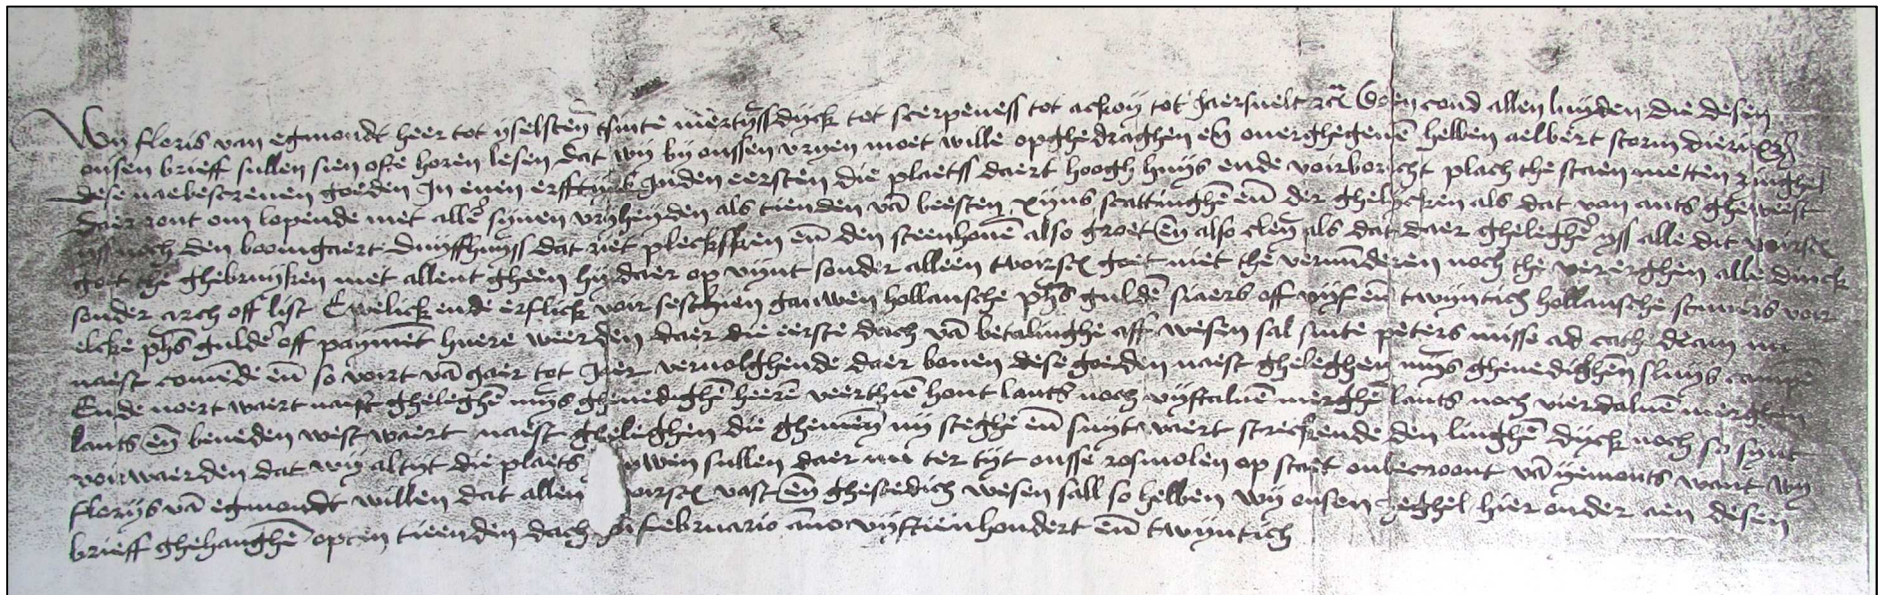 Wij floris van egmondt heer tot yselsteÿn tsinte mertÿssdijck tot scerpeness tot ackoy tot Jaersuelt doen cond allen luyden die desen
onsen brieff sullen sien ofte horen lesen dat wij bij onssen vryen moet wille opghedraghen eñ ouerghegeuē hebben aelbert storm
dese naebescreuen goeden In enen erfftijns Inden eersten die plaetss daert hoogh huys ende voirborcht plach the staen metten ringhel
daer ront om lopende met alle synen vryheyden als tienden vā beesten xijns scattinghē eñ der ghelycken als dat van ants gheweest
yss noch den boomgaert duyffhuyss dat riet pleckskien eñ den steenhouē also groet eñ also cleyn als dat daer gheleghē yss alle dit voirscr
goet the ghebruycken met allent gheen hijdaer op vynt sonder alleen tvoirscr goet niet the vermynderen noch the vererghen alle dinck
sonder arch off list Ewelick ende erflick voir sesthien gauwen hollansche phs guldē siaers off vijf eñ twijntich hollansche stuuers voir
elcke phs guldē off paymēt huere weerden daer die eerste dach vā betalinghe aff wesen sal sinte peters misse ad cathedram nu
naest comēde eñ so voirt vā jaer tot Jaer veruolghende daer bouen dese goeden naest gheleghen mijns ghenedighen sluys
Ende noert waert naest gheleghē mijns ghenedighē heerē veerthiē hont lants noch vijftaluē merghē lants noch vierdaluē merghen
lants eñ beneden west waert naest gheleghen die ghemeyn steghe eñ suyt waert streckende den linghē dyck noch so synt
voirwaerden dat wij altijt die plaets sullen daer nu ter tijt onsse rosmolen op staet onbecroont vā yemonts want wij
florijs vā egmondt willen dat allen voirscr vast eñ ghestedich wesen sall so hebben wij onsen zeghel hier onder aen desen
brieff ghehanghē opten tienden dach februario āno vijftienhondert eñ twijntich